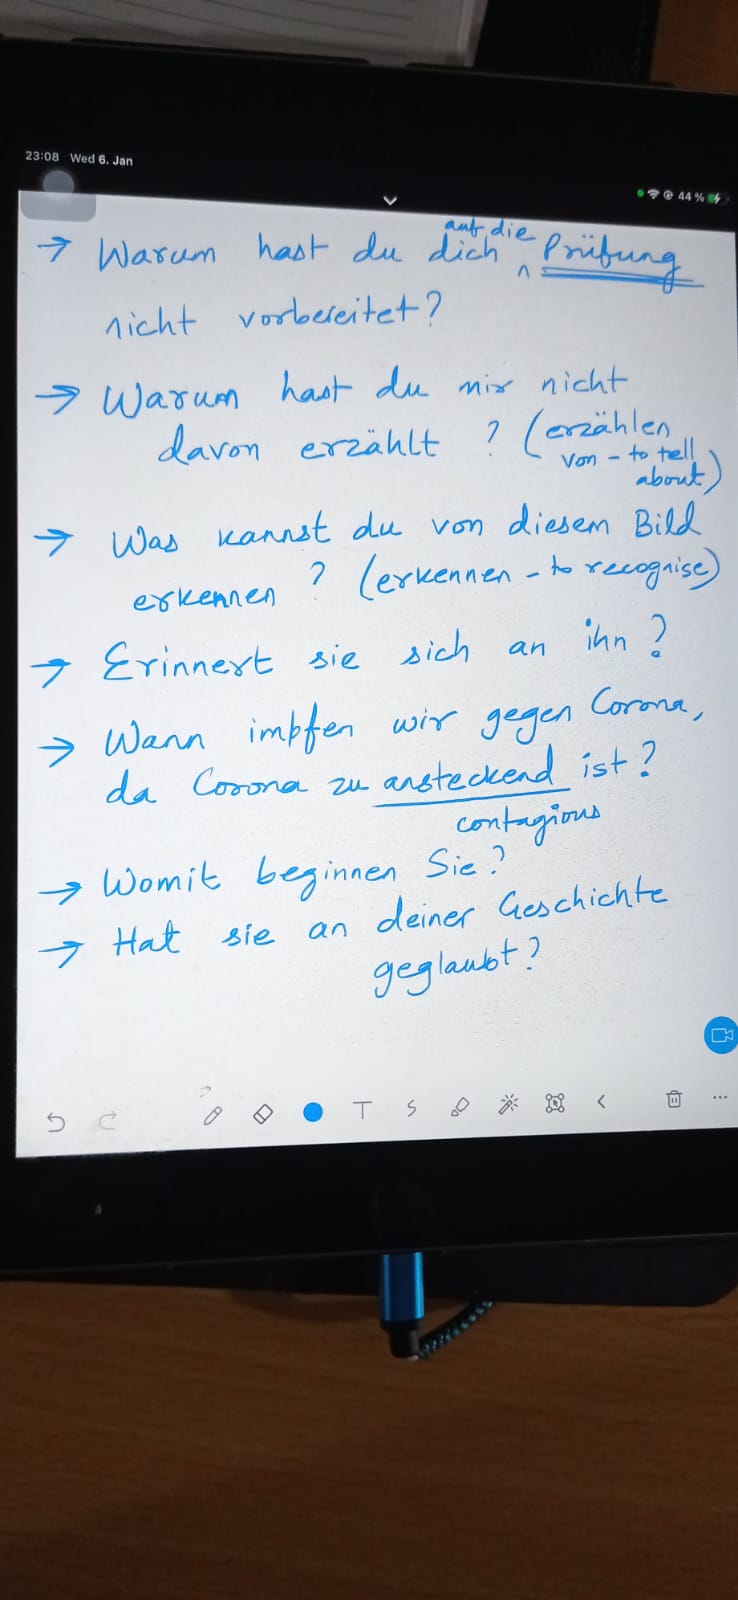 23:08 Wed 6. Jan
44 %
auf die
→ Warum hast du dich ^ Prüfung
nicht vorbereitet?
→ Warum hast du mir nicht
davon erzählt ? (erzählen
von - to tell
about)
→ Was kannst du von diesem Bild
erkennen ? (erkennen - to recognise)
→ Erinnert sie sich an ihn ?
→ Wann impfen wir gegen Corona,
da Corona zu ansteckend ist ?
contagious
→ Womit beginnen Sie ?
→ Hat sie an deiner Geschichte
geglaubt ?
T